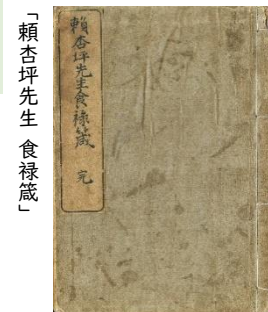 「頼杏坪先生 食禄箴」
頼杏坪先生食禄箴 完